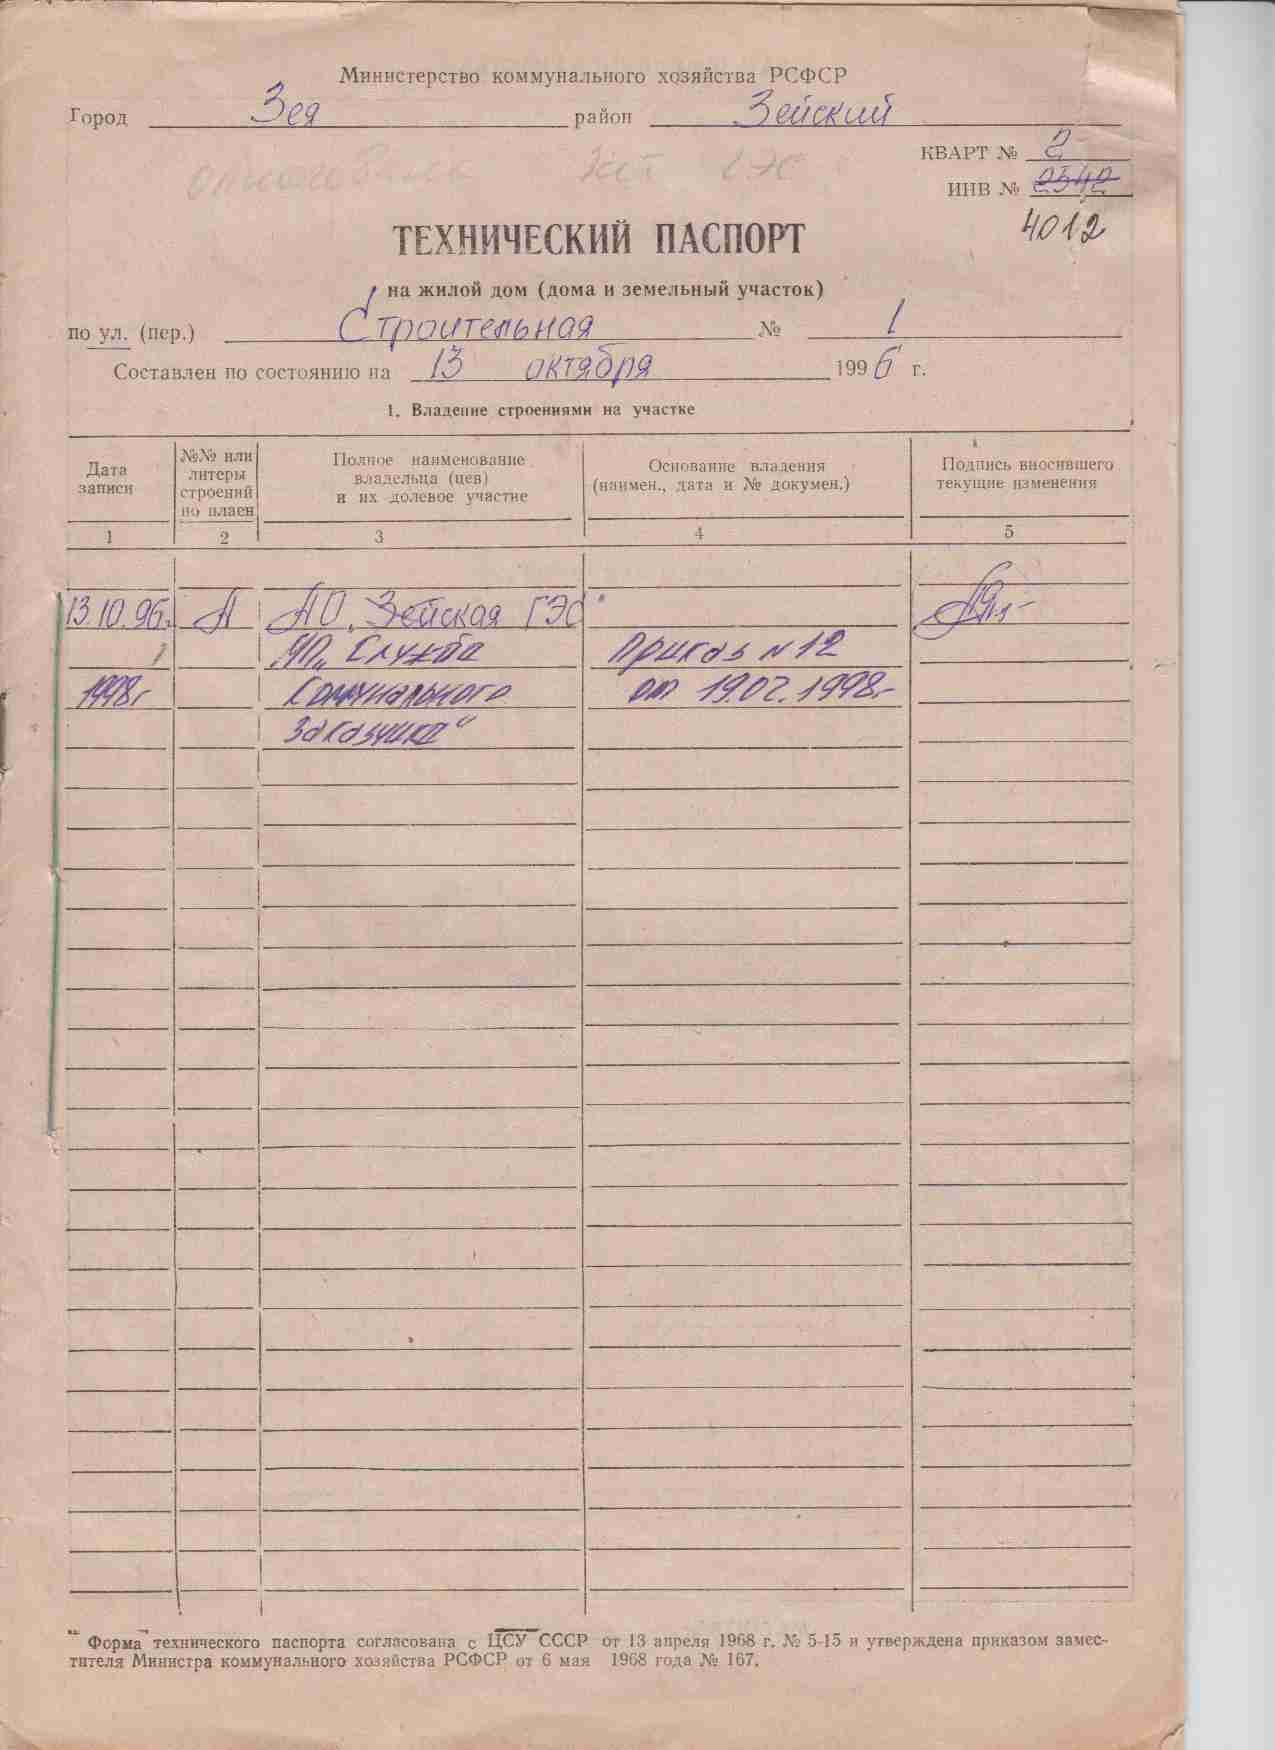 Министерство коммунального хозяйства РСФСР
Город Зея район Зейский
КВАРТ № 2
ИНВ № 2342
4012
ТЕХНИЧЕСКИЙ ПАСПОРТ
на жилой дом (дома и земельный участок)
по ул. (пер.) Строительная № 1
Составлен по состоянию на 13 октября 1996 г.
1. Владение строениями на участке
Дата записи
№№ или литеры строений по плаен
Полное наименование владельца (цев) и их долевое участие
Основание владения (наимен., дата и № докумен.)
Подпись вносившего текущие изменения
1 2 3 4 5
13.10.96г. А АО „Зейская ГЭС"
УП „Служба Приказ №12
1998г Коммунального от 19.02.1998г
Заказчика"
Форма технического паспорта согласована с ЦСУ СССР от 13 апреля 1968 г. № 5-15 и утверждена приказом замес-
тителя Министра коммунального хозяйства РСФСР от 6 мая 1968 года № 167.